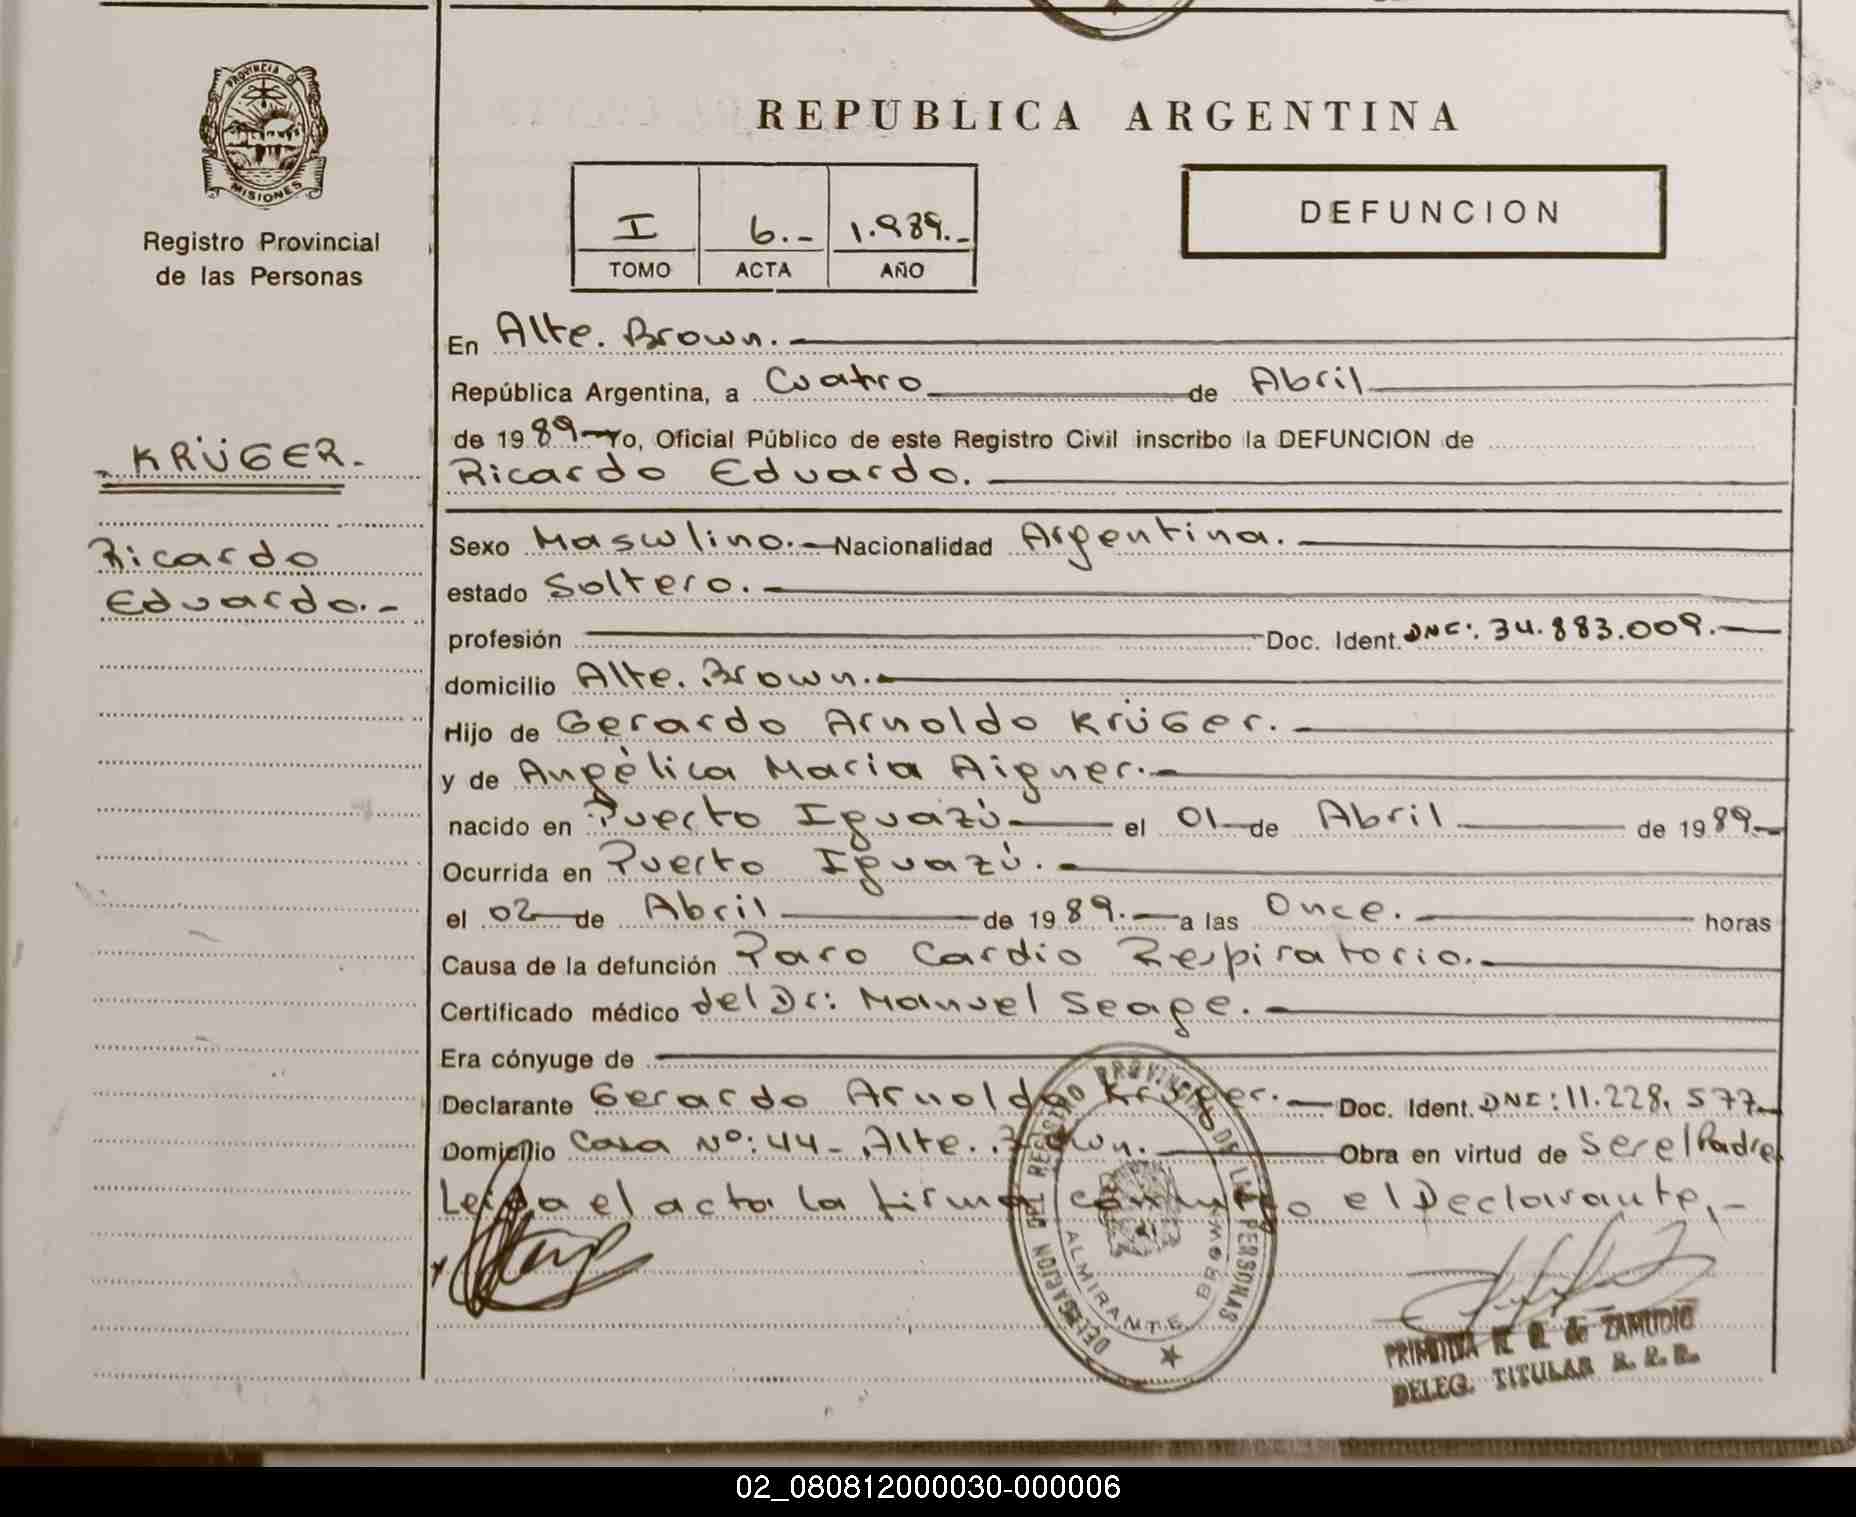 PROVINCIA DE
MISIONES
Registro Provincial
de las Personas
KRÜGER.-
Ricardo
Eduardo.-
REPUBLICA ARGENTINA
I 6.- 1.989.-
TOMO ACTA AÑO
DEFUNCION
En Alte. Brown.-
República Argentina, a Cuatro de Abril
de 1989 Yo, Oficial Público de este Registro Civil inscribo la DEFUNCION de
Ricardo Eduardo.
Sexo Masculino.- Nacionalidad Argentina.
estado Soltero.
profesión Doc. Ident. DNI: 34.883.009.-
domicilio Alte. Brown.-
Hijo de Gerardo Arnoldo Krüger.
y de Angélica María Aigner.-
nacido en Puerto Iguazú el 01 de Abril de 1989.-
Ocurrida en Puerto Iguazú.
el 02 de Abril de 1989.- a las Once. horas
Causa de la defunción Paro Cardio Respiratorio.-
Certificado médico del Dr: Manuel Seage.-
Era cónyuge de
Declarante Gerardo Arnoldo Krüger.- Doc. Ident. DNI: 11.228.577-
Domicilio Casa Nº: 44- Alte. Brown. Obra en virtud de Ser el Padre
Leída el acta la firma conmigo el Declarante.-
DELEGACION DEL REGISTRO PROVINCIAL DE LAS PERSONAS
ALMIRANTE BROWN
de ZAMUDIO
DELEG. TITULAR R. P. P.
02_080812000030-000006